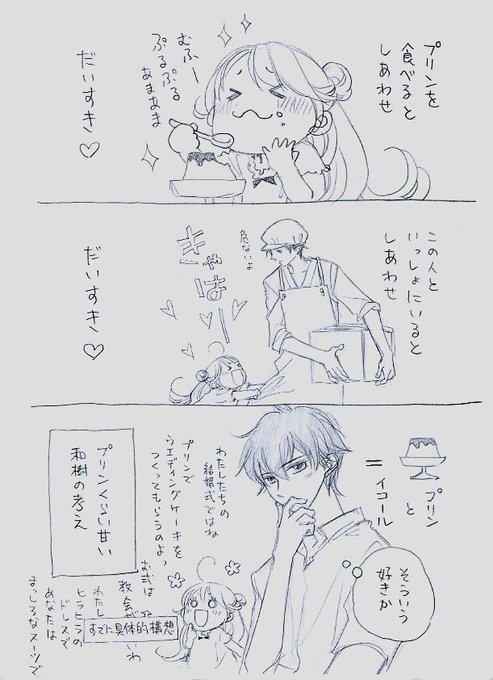 プリンを
食べると
しあわせ
むふー
ぷるぷる
あまあま
だいすき♡
この人と
いっしょにいると
しあわせ
危ないよ
きゃはー
だいすき♡
プリン
と
＝
イコール
そういう
好きか
わたしたちの
結婚式ではね
プリンで
ウエディングケーキを
つくってもらうのよっ
お式は
教会が
いいわ
わたし
ヒラヒラの
ドレスで
あなたは
まっしろなスーツで
すでに具体的構想
プリンくらい甘い
和樹の考え